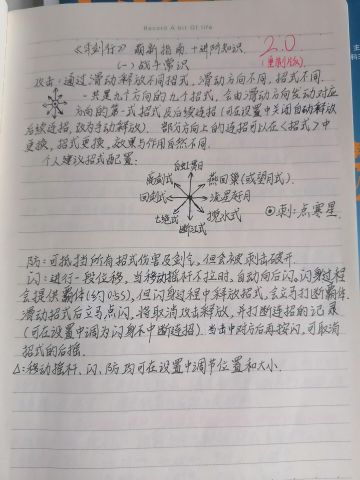 Record A bit Of life
《求剑行》萌新指南+进阶知识 2.0
(一)战斗常识 (重制版)
攻击:通过滑动释放不同招式,滑动方向不同,招式不同.
一共是九个方向的九个招式,会由滑动方向发动对应
方向的第一式招式及后续连招(可在设置中关闭自动释放
后续连招,改为手动释放).部分方向上的连招可以在<招式>中
更换,招式更换,效果与作用自然不同.
个人建议招式配置:
白虹贯日
燕回巢(或望月式).
回剑式 流星赶月
搅水式
断江式
⊙刺:点寒星.
防:可抵挡所有招式伤害及剑气,但会被刺击破开.
闪:进行一段位移,当移动摇杆不拉时,自动向后闪,闪身过程
会提供霸体(约0.5s),但闪身过程中释放招式,会立马打断霸体.
滑动招式后立马点闪,将取消攻击释放,并打断连招的记录
(可在设置中调为闪身不中断连招).当击中对方后再按闪,可取消
招式的后摇.
△:移动摇杆、闪、防均可在设置中调节位置和大小.